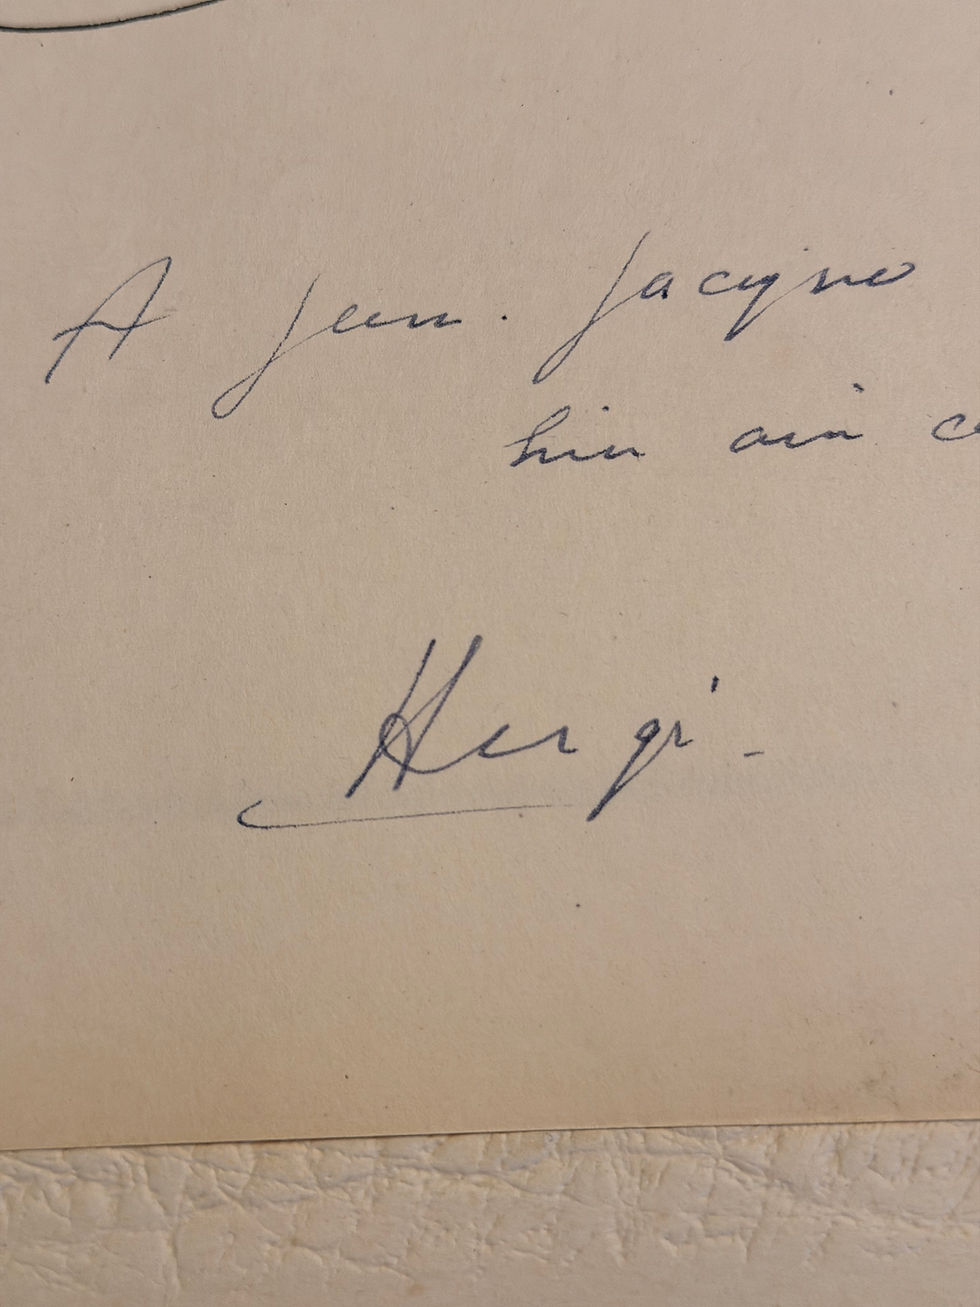 A Jean-Jacques
bien ami
Hergé